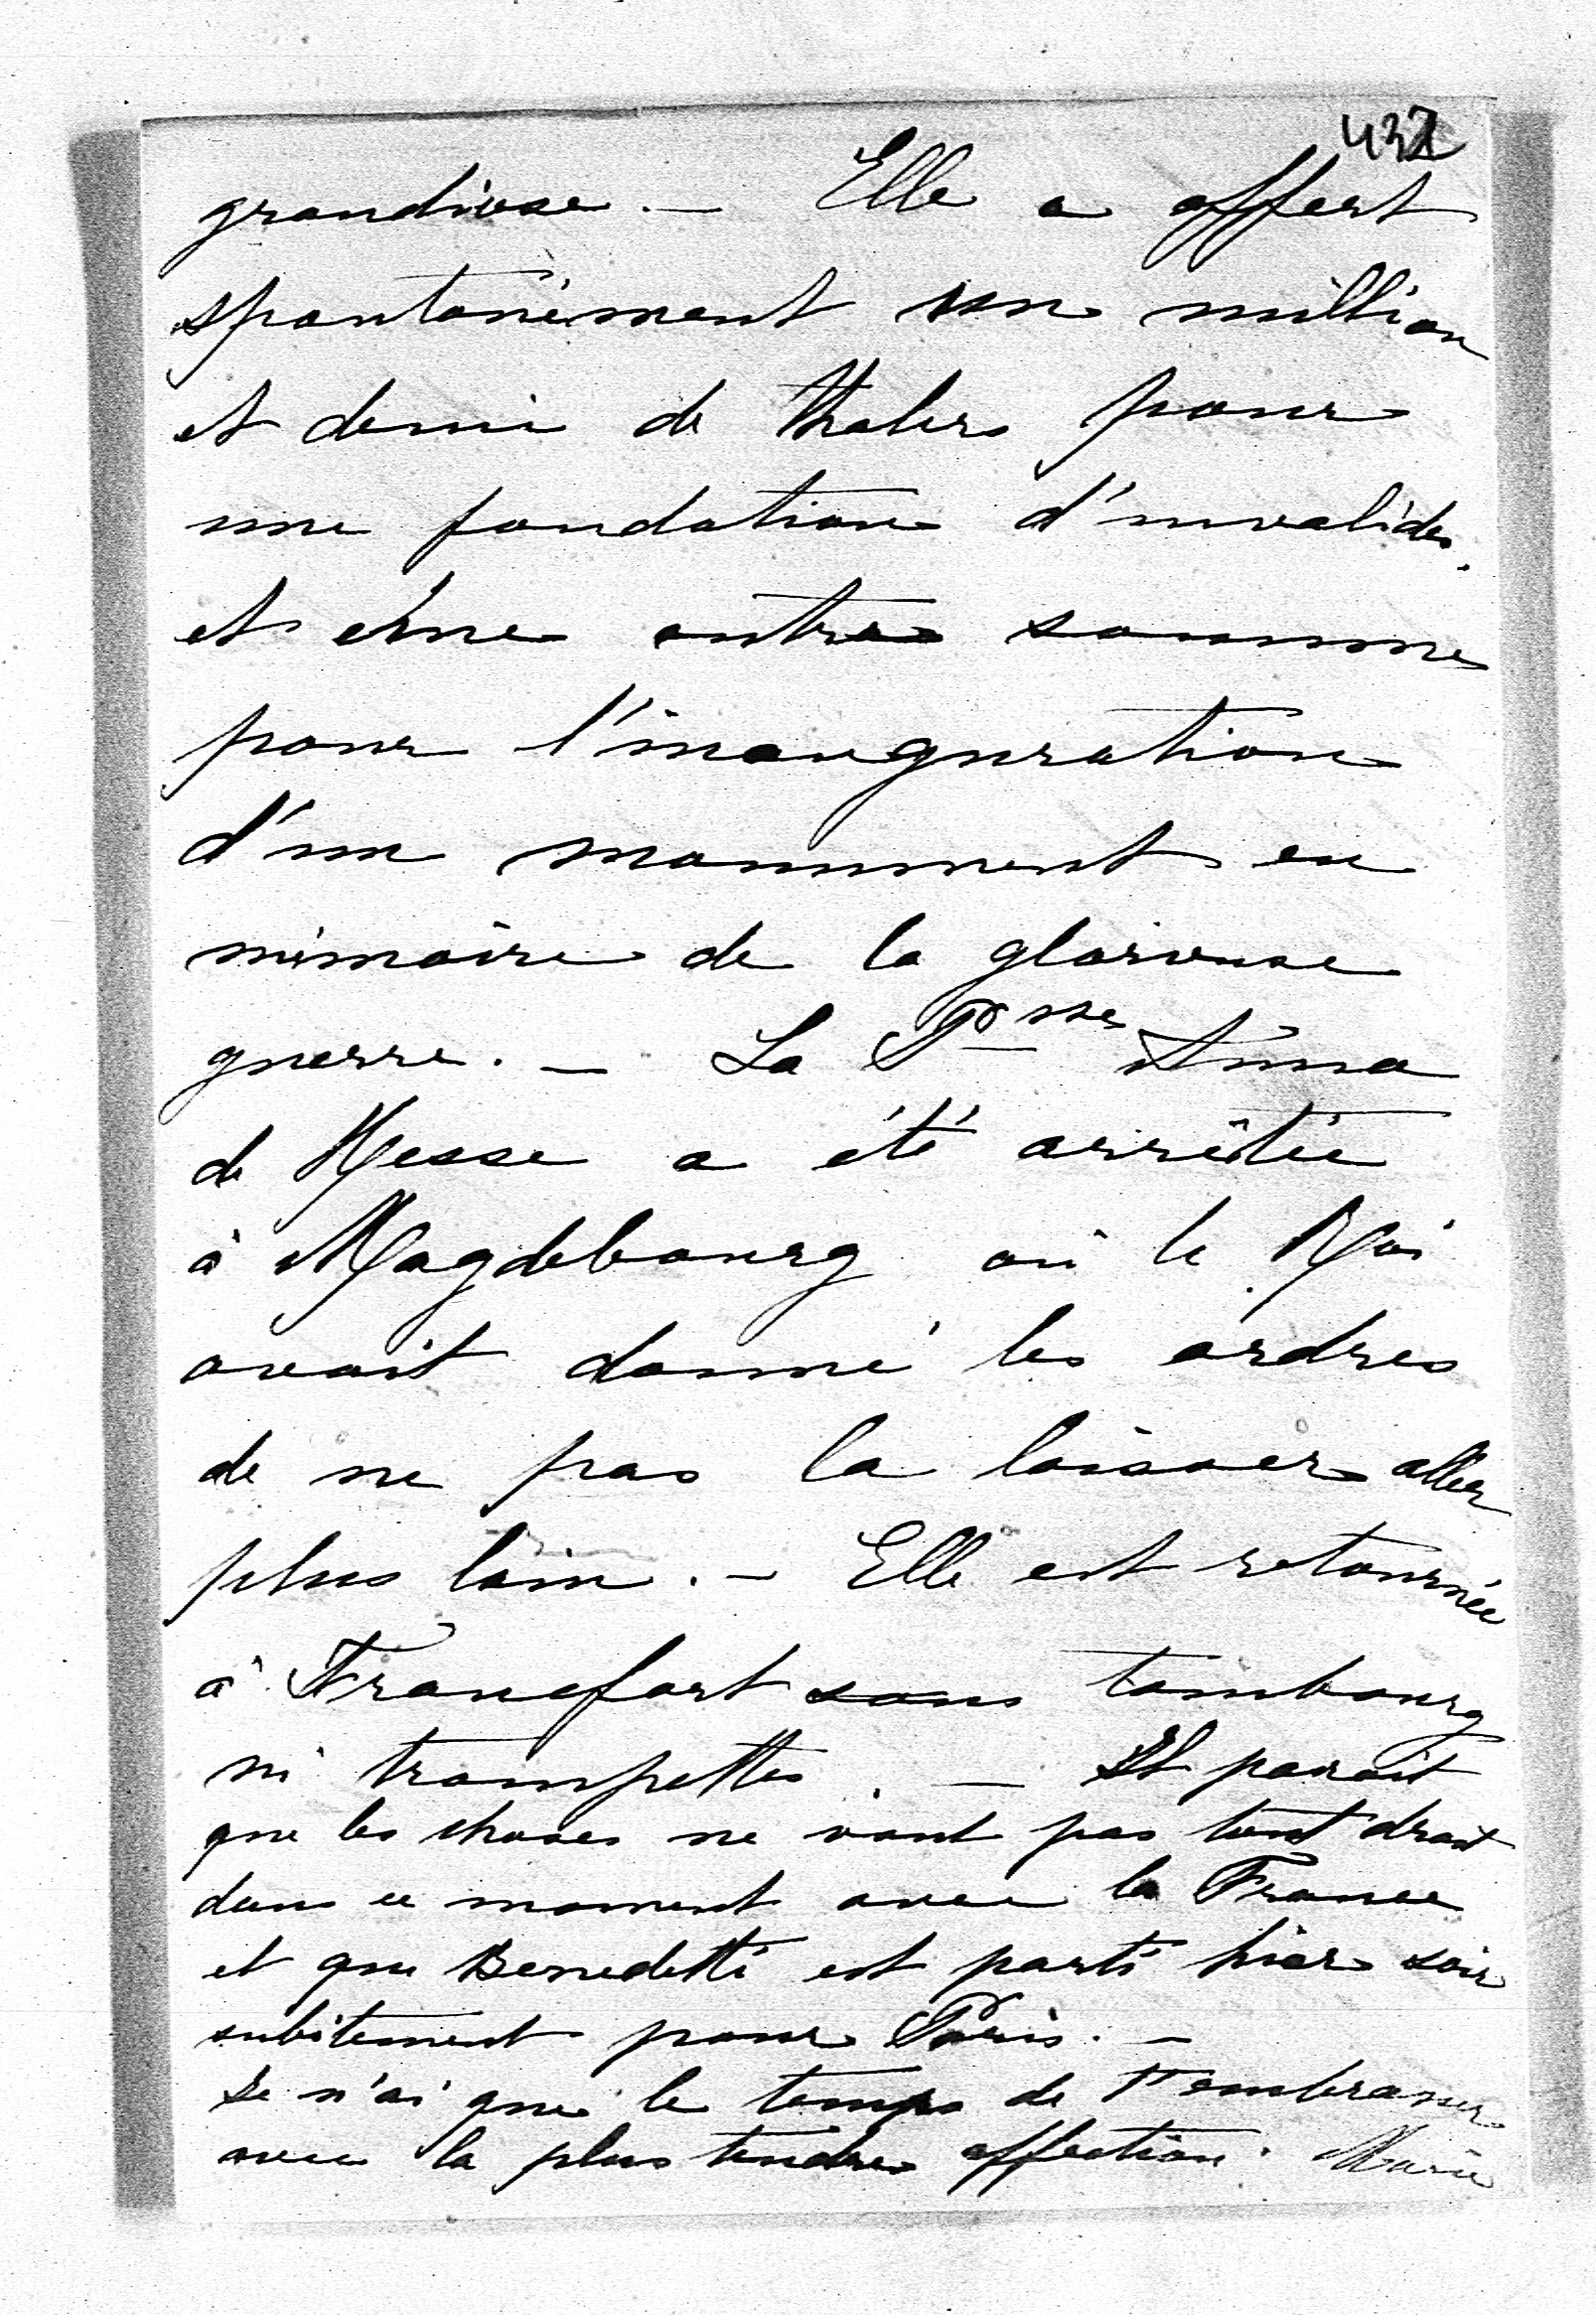 432
grandiose. — Elle a offert
spontanément un million
et demi de thalers pour
une fondation d'invalides.
et une autre somme
pour l'inauguration
d'un monument en
mémoire de la glorieuse
guerre. — La Psse Anna
de Hesse a été arrêtée
à Magdebourg où le Roi
avait donné les ordres
de ne pas la laisser aller
plus loin. — Elle est retournée
à Francfort sans tambourg
ni trompettes. — Il parait
que les choses ne vont pas tout droit
dans ce moment avec la France
et que Benedetti est parti hier soir
subitement pour Paris. —
Je n'ai que le temps de t'embrasser
avec la plus tendre affection. Marie